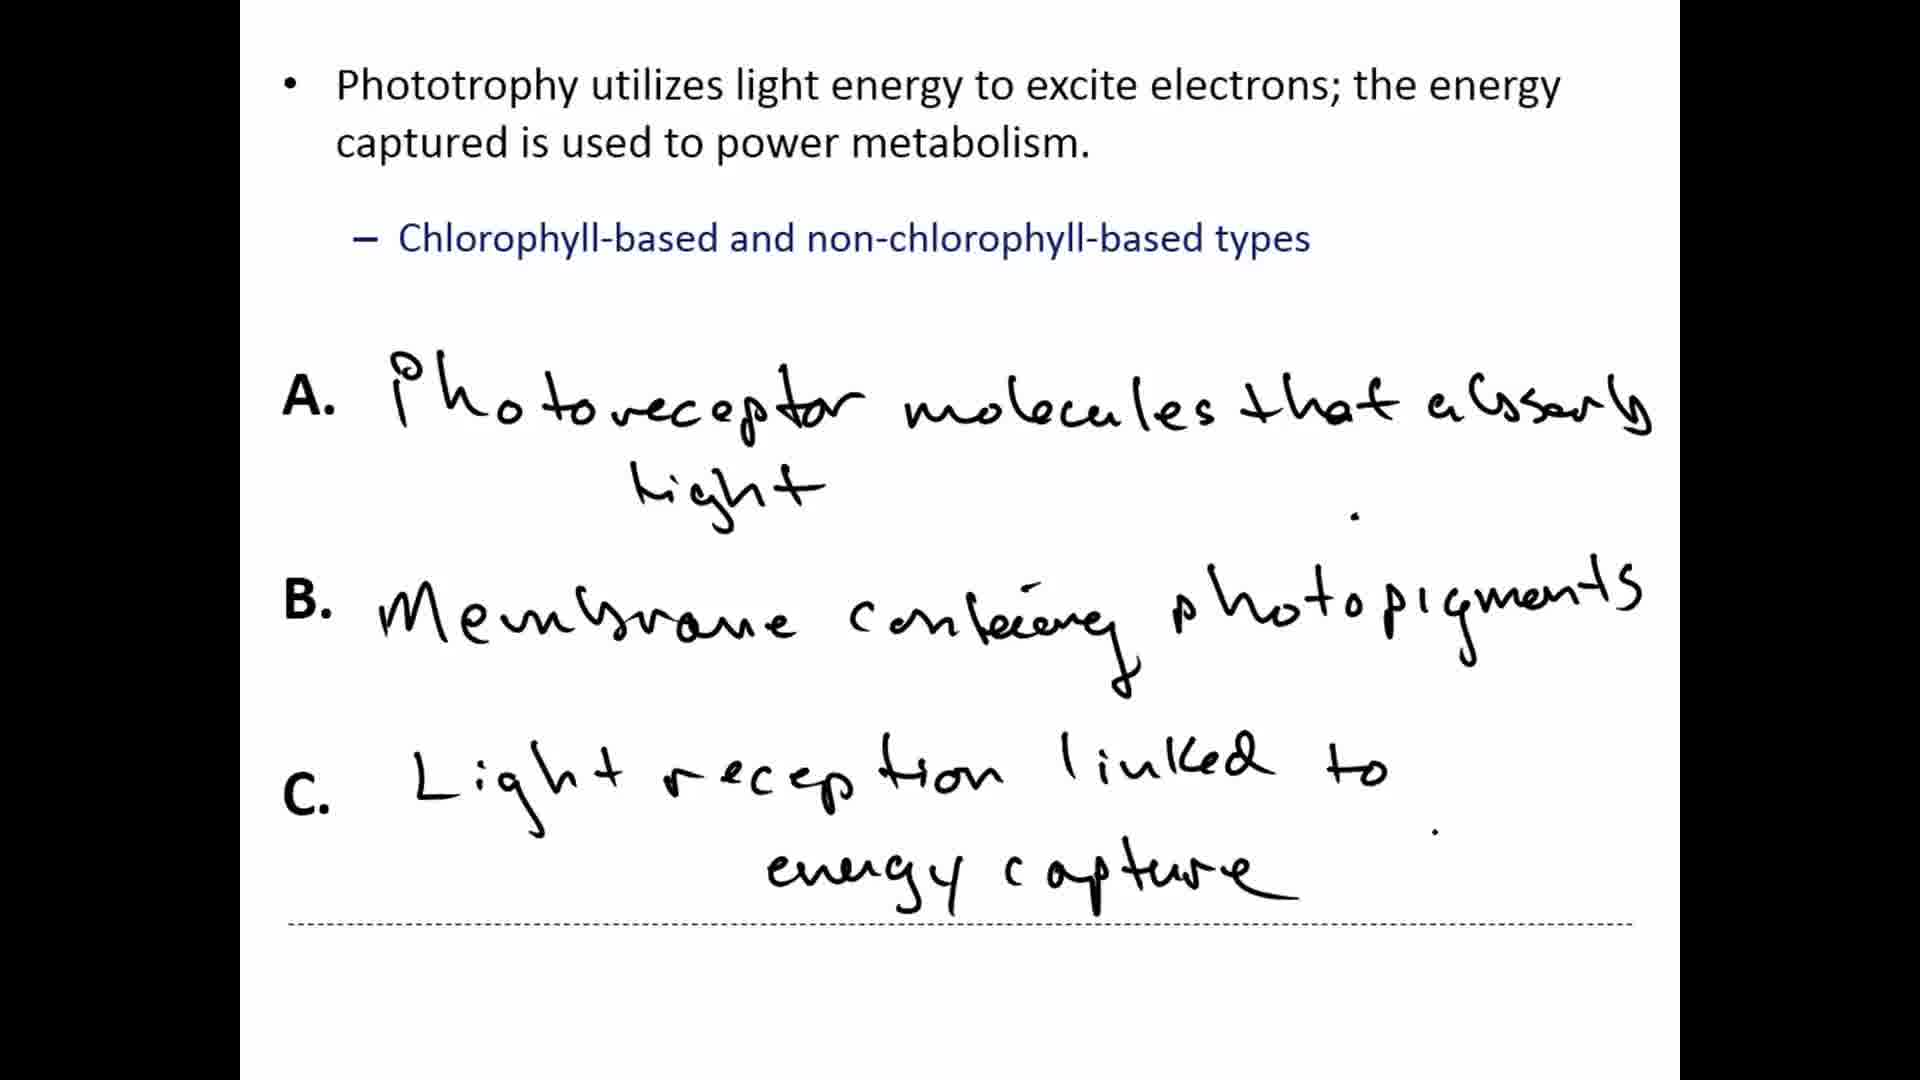 • Phototrophy utilizes light energy to excite electrons; the energy
captured is used to power metabolism.
– Chlorophyll-based and non-chlorophyll-based types
A. Photoreceptor molecules that absorb
light
B. Membrane containing photopigments
C. Light reception linked to
energy capture